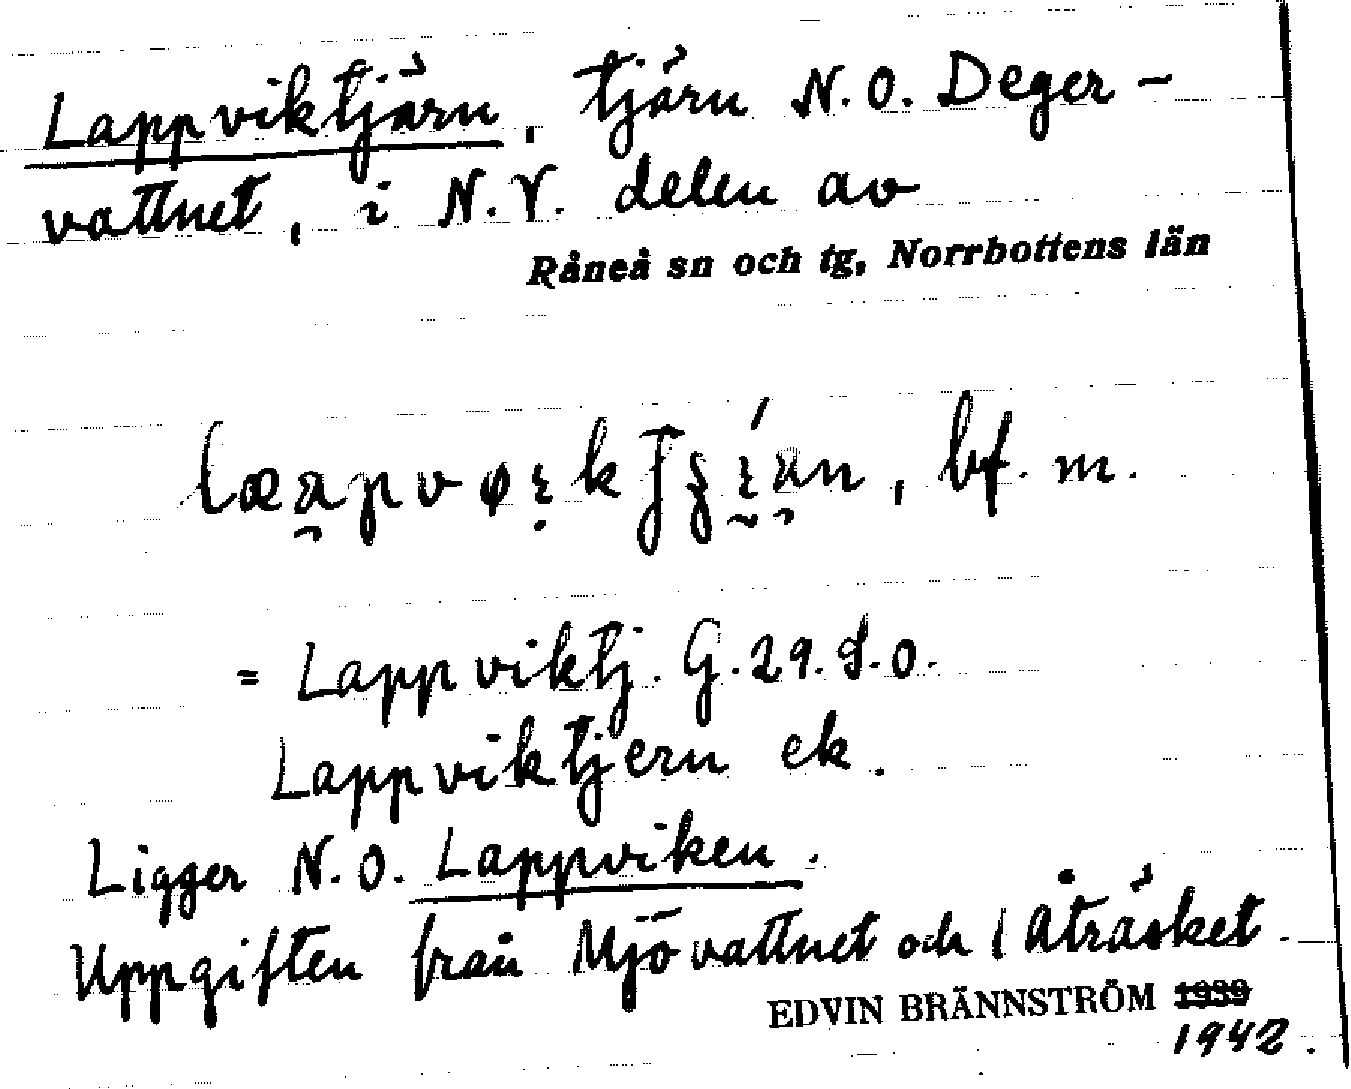 Lappviktjärn, tjärn N.O. Deger-
vattnet, i N.V. delen av
Råneå sn och tg, Norrbottens län
bf. m.
= Lappviktj. G. 29. S.O.
Lappviktjern ek.
Ligger N.O. Lappviken.
Uppgiften från Mjövattnet och Åträsket.
EDVIN BRÄNNSTRÖM 1939
1942.